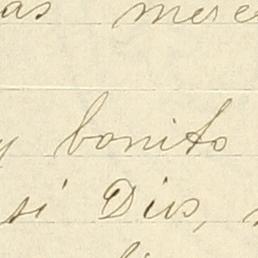 as mere
y bonito
si Dios,